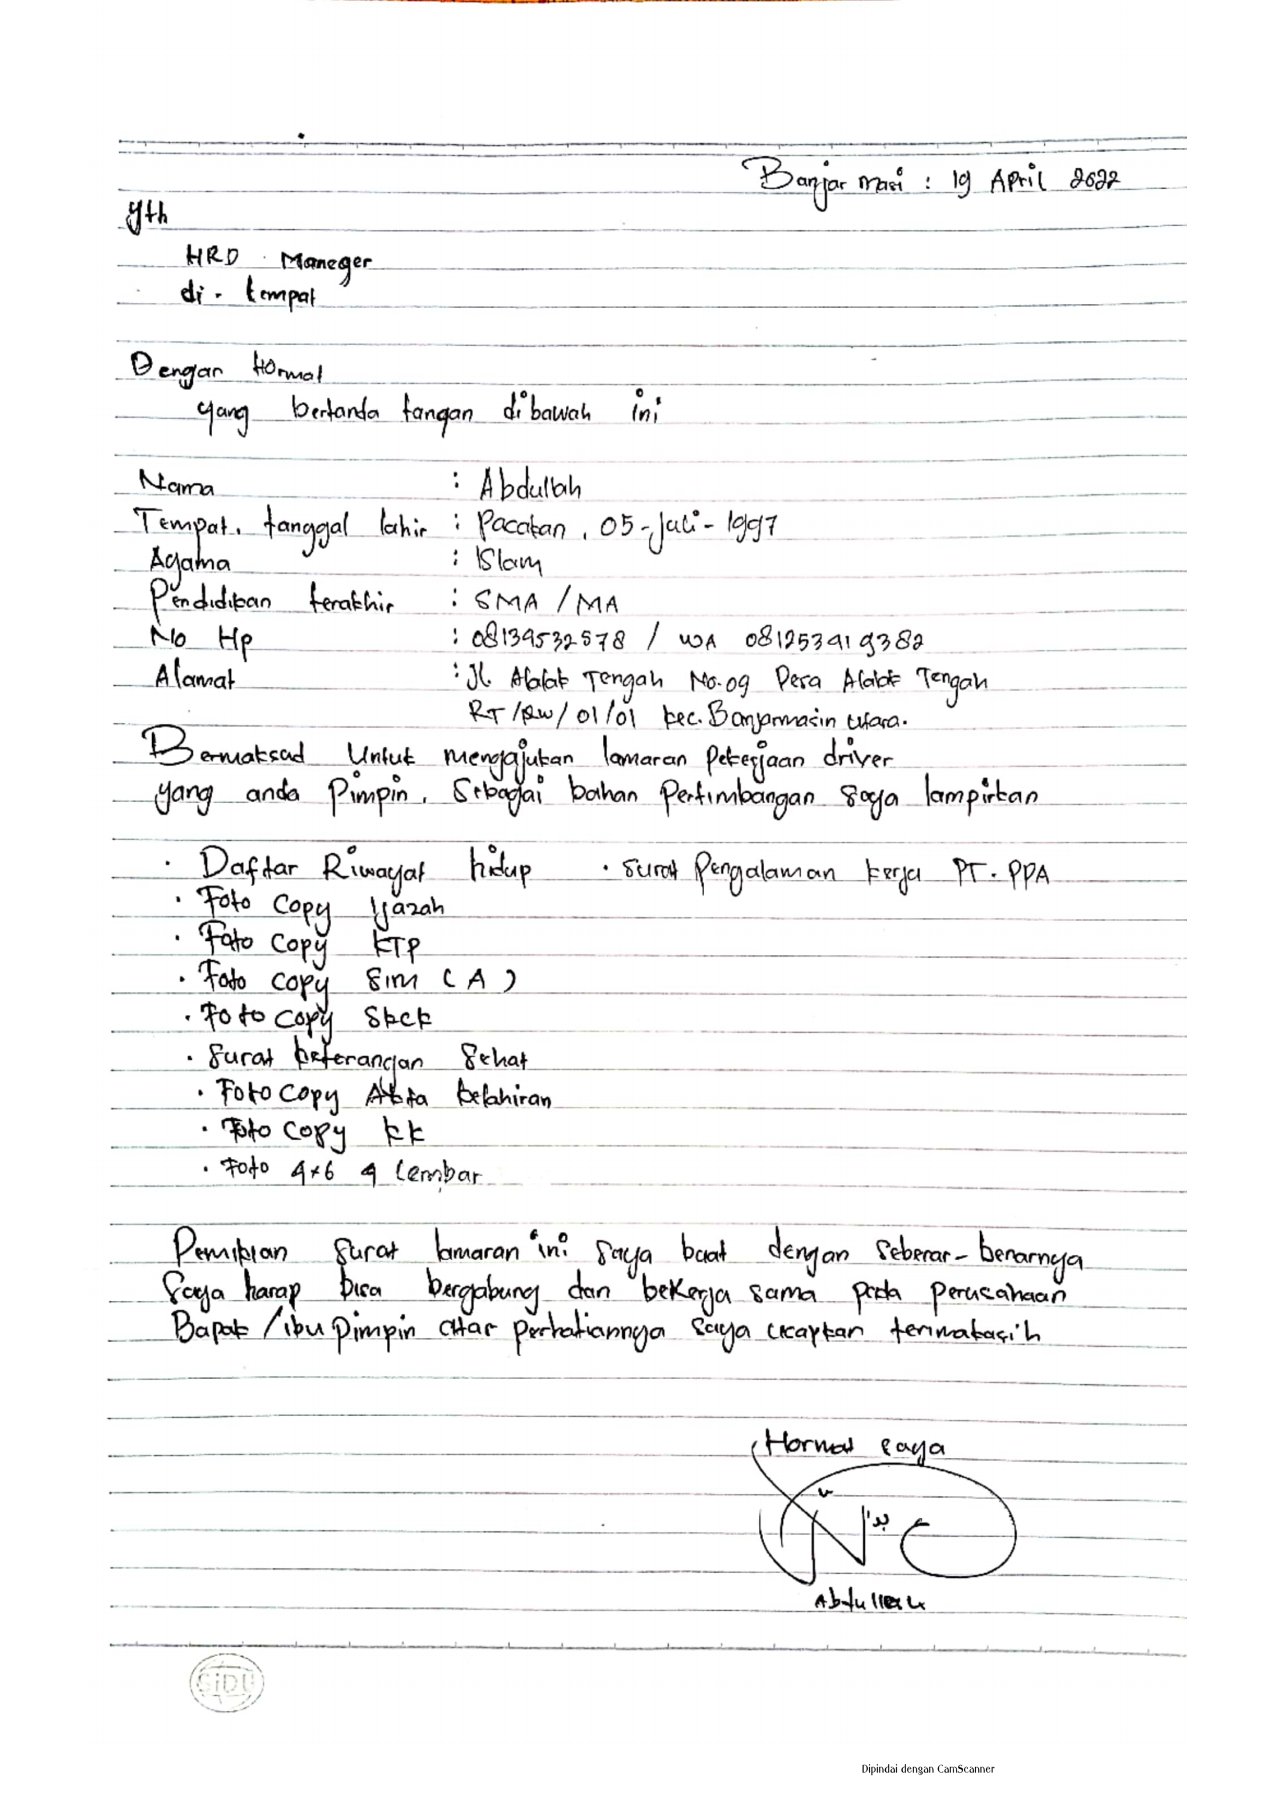 Banjar masi : 19 April 2022
Yth
HRD Maneger
di. tempat
Dengan Hormat
yang bertanda tangan dibawah ini
Nama : Abdullah
Tempat, tanggal lahir : Pacakan, 05-Juli-1997
Agama : Islam
Pendidikan terakhir : SMA / MA
No Hp : 08139532578 / WA 081253919382
Alamat : Jl. Alalak Tengah No.09 Desa Alalak Tengah
RT/RW/01/01 kec. Banjarmasin utara.
Bermaksad Untuk mengajukan lamaran pekerjaan driver
yang anda Pimpin. Sebagai bahan Pertimbangan saya lampirkan
· Daftar Riwayat hidup · Surat Pengalaman kerja PT. PPA
· Foto Copy Ijazah
· Foto Copy KTP
· Foto Copy Sim (A)
· Foto Copy Skck
· Surat keterangan Sehat
· Foto Copy Akta kelahiran
· Foto Copy KK
· Foto 4x6 4 Lembar
Demikian Surat lamaran ini saya buat dengan seberar-benarnya
Saya harap bisa bergabung dan bekerja sama pada perusahaan
Bapak / ibu Pimpin atar perhatiannya saya ucapkan terimakasih
Hormat saya
Abdullah
SiDU
Dipindai dengan CamScanner